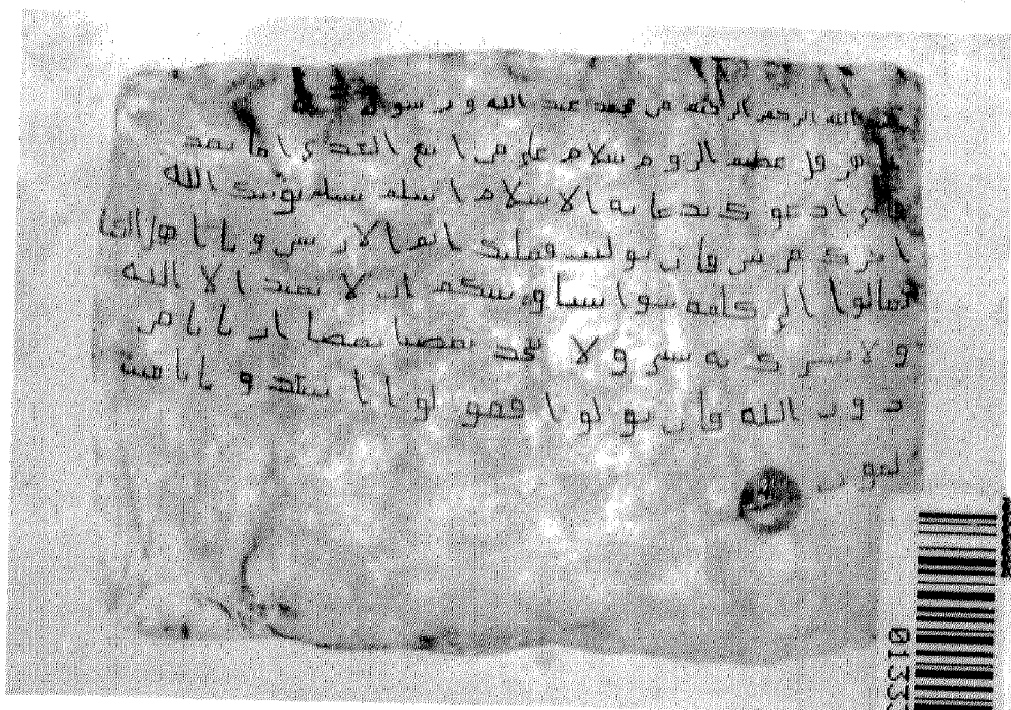 الله الرحمن الرحيم من محمد عبد الله ورسوله
هرقل عظيم الروم سلام على من اتبع الهدى اما بعد
فانى ادعوك بدعاية الاسلام اسلم تسلم يؤتك الله
اجرك مرتين فان توليت فعليك اثم الاريسين ويا اهل الكتا
تعالوا الى كلمة سوا بيننا وبينكم ان لا نعبد الا الله
ولا نشرك به شى ولا يتخذ بعضنا بعضا اربابا من
دون الله فان تولوا فقولوا
لمون
0133